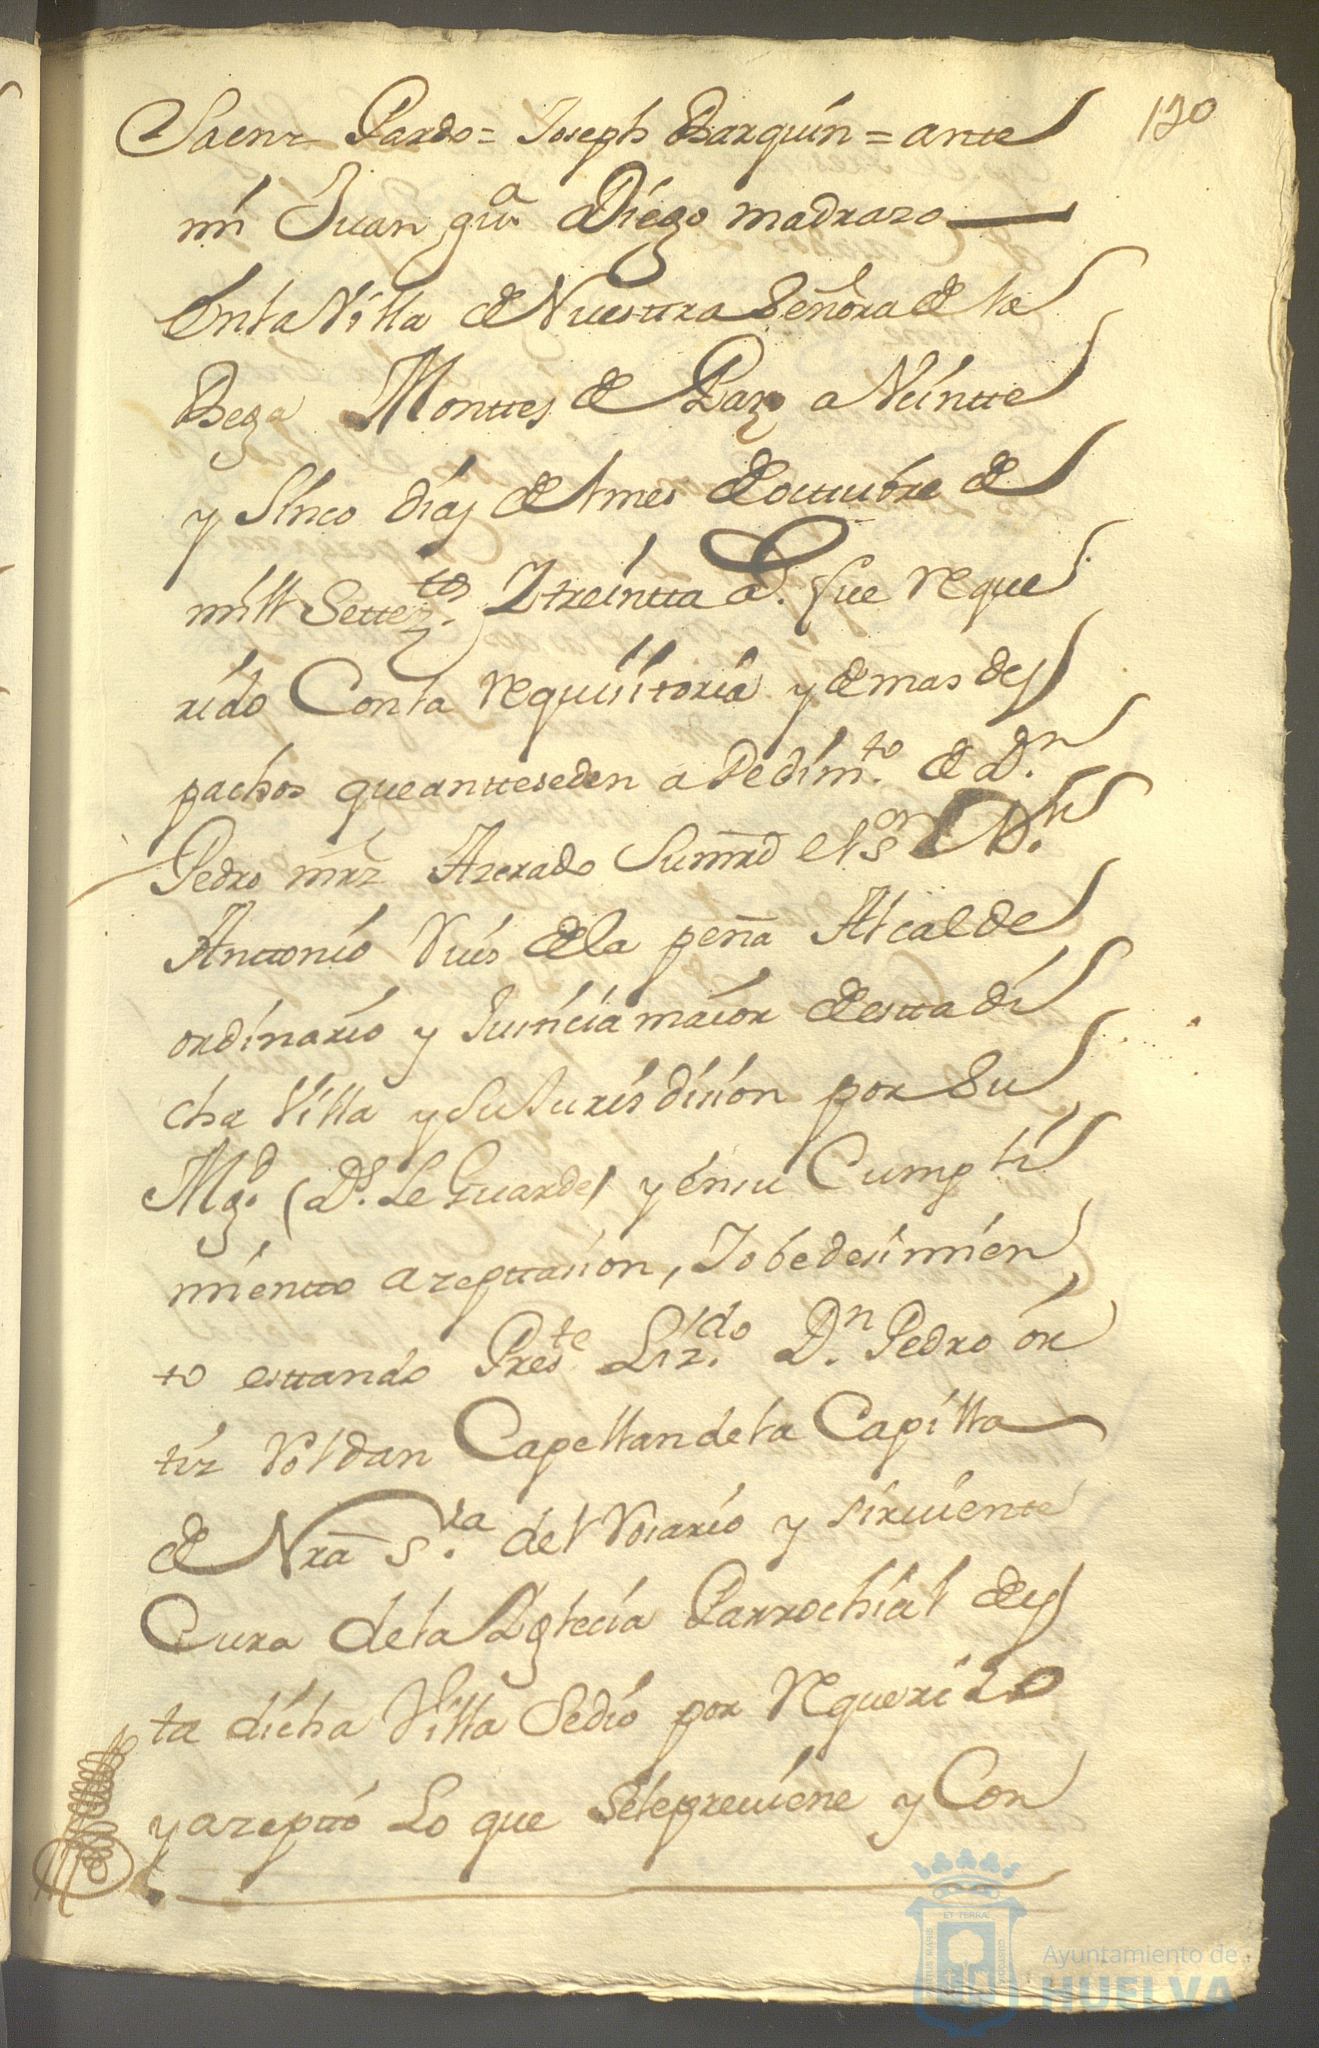 120
Saenz Pardo = Joseph Barquin = ante
mi Juan gra Diego madrazo
En la Villa de Nuesttra Señora de la
Bega Monttes de Paz a Veintte
y sinco dias del mes de octtubre de
mill Settez.tos Y treintta a.s fue reque
rido Con la requisitoria y demas des
pachos que antteseden a Pedim.to de D.n
Pedro mrz Azerado Sumrd el s.or
Anttonio Ruis de la peña Alcalde
ordinario y Justicia maior de estta di
cha Villa y su Jurisdision por Su
Mg.d (D.s Le Guarde) y en su Cumpli
mientto azepttasion, Y obedesimien
to esttando Pres.te Liz.do D.n Pedro or
tiz Roldan Capellan de la Capilla
de Nra S.ra del Rosario y sirviente
Cura de la Yglecia Parrochial de es
ta dicha Villa Se dio por Requerido
y azeptto Lo que se le previene y Con
Ayuntamiento de
HUELVA